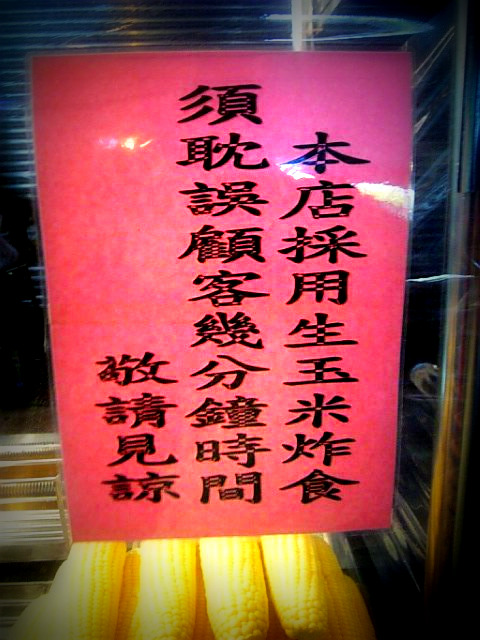 本店採用生玉米炸食
須耽誤顧客幾分鐘時間
敬請見諒